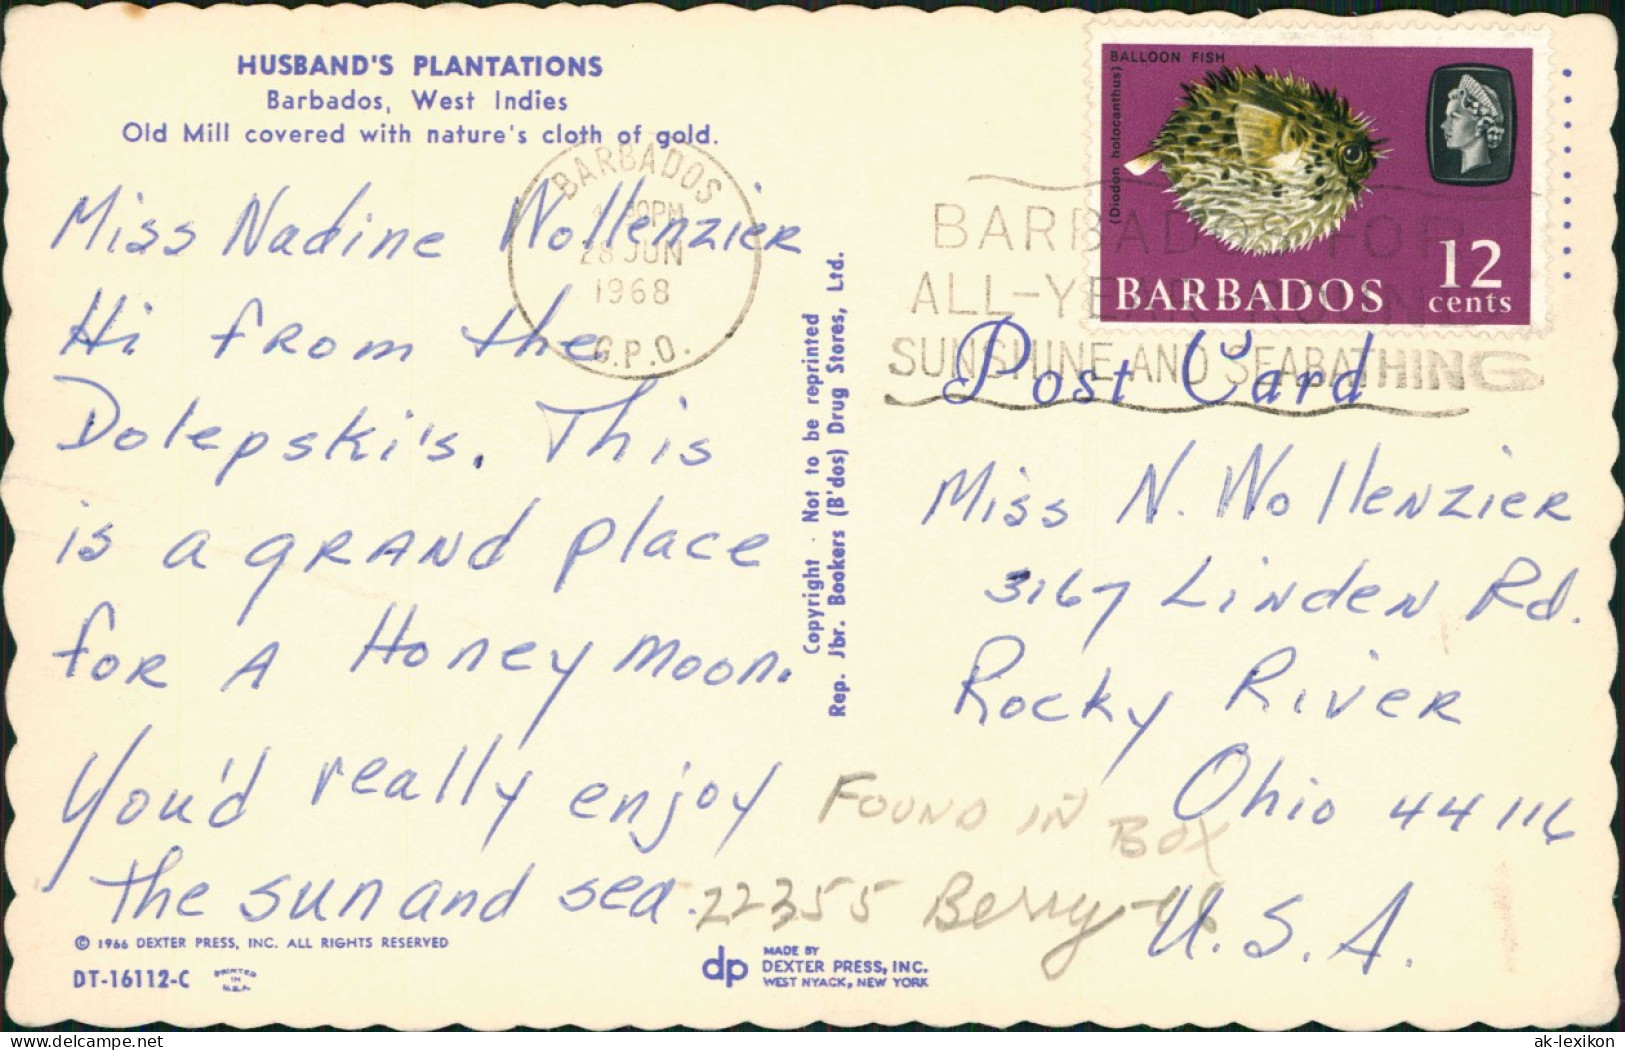 HUSBAND'S PLANTATIONS
Barbados, West Indies
Old Mill covered with nature's cloth of gold.
Miss Nadine Wollenzier
Hi from the
Dolepski's. This
is a grand place
for a Honeymoon.
You'd really enjoy
the sun and sea.
© 1966 DEXTER PRESS, INC. ALL RIGHTS RESERVED
DT-16112-C
PRINTED
IN
U.S.A.
BARBADOS
30PM
28 JUN
1968
G.P.O.
Copyright · Not to be reprinted
Rep. Jbr. Bookers (B'dos) Drug Stores, Ltd.
dp
MADE BY
DEXTER PRESS, INC.
WEST NYACK, NEW YORK
BALLOON FISH
(Diodon holocanthus)
BARBADOS
12
cents
BARBADOS FOR
ALL-YEAR
SUNSHINE AND SEABATHING
Post Card
Miss N. Wollenzier
3167 Linden Rd.
Rocky River
Ohio 44116
U.S.A.
FOUND IN
BOX
22355 Berry
delcampe.net
ak-lexikon